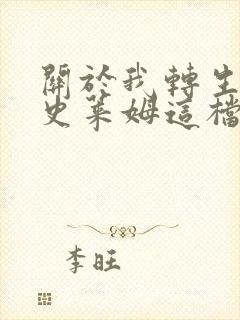 關於我轉生
史萊姆這檔
李旺